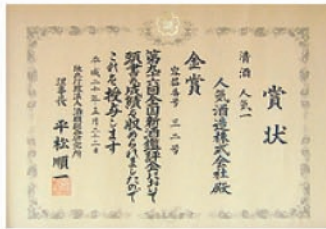 賞状
清酒 人気一
人気酒造株式会社殿
金賞
第九六回全国新酒鑑評会において
頭書の成績を収められましたので
これを授与します
平成二十年五月二十二日
独立行政法人酒類総合研究所
理事長 平松順一